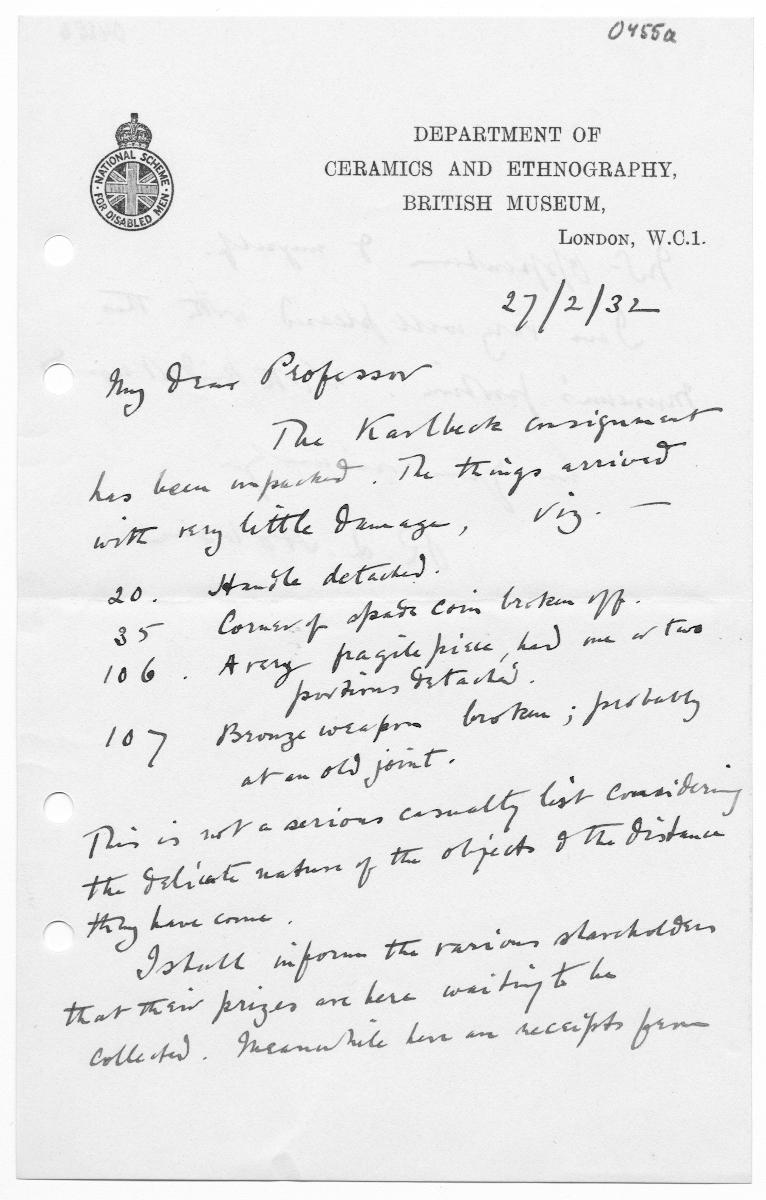 0455a
NATIONAL SCHEME
FOR DISABLED MEN
DEPARTMENT OF
CERAMICS AND ETHNOGRAPHY,
BRITISH MUSEUM,
LONDON, W.C.1.
27/2/32
My dear Professor
The Karlbeck consignment
has been unpacked. The things arrived
with very little damage, viz. —
20. Handle detached.
35 Corner of spade coin broken off.
106. A very fragile piece, had one or two
portions detached.
107 Bronze weapon broken; probably
at an old joint.
This is not a serious casualty list considering
the delicate nature of the objects & the distance
they have come.
I shall inform the various shareholders
that their prizes are here waiting to be
collected. Meanwhile here are receipts from